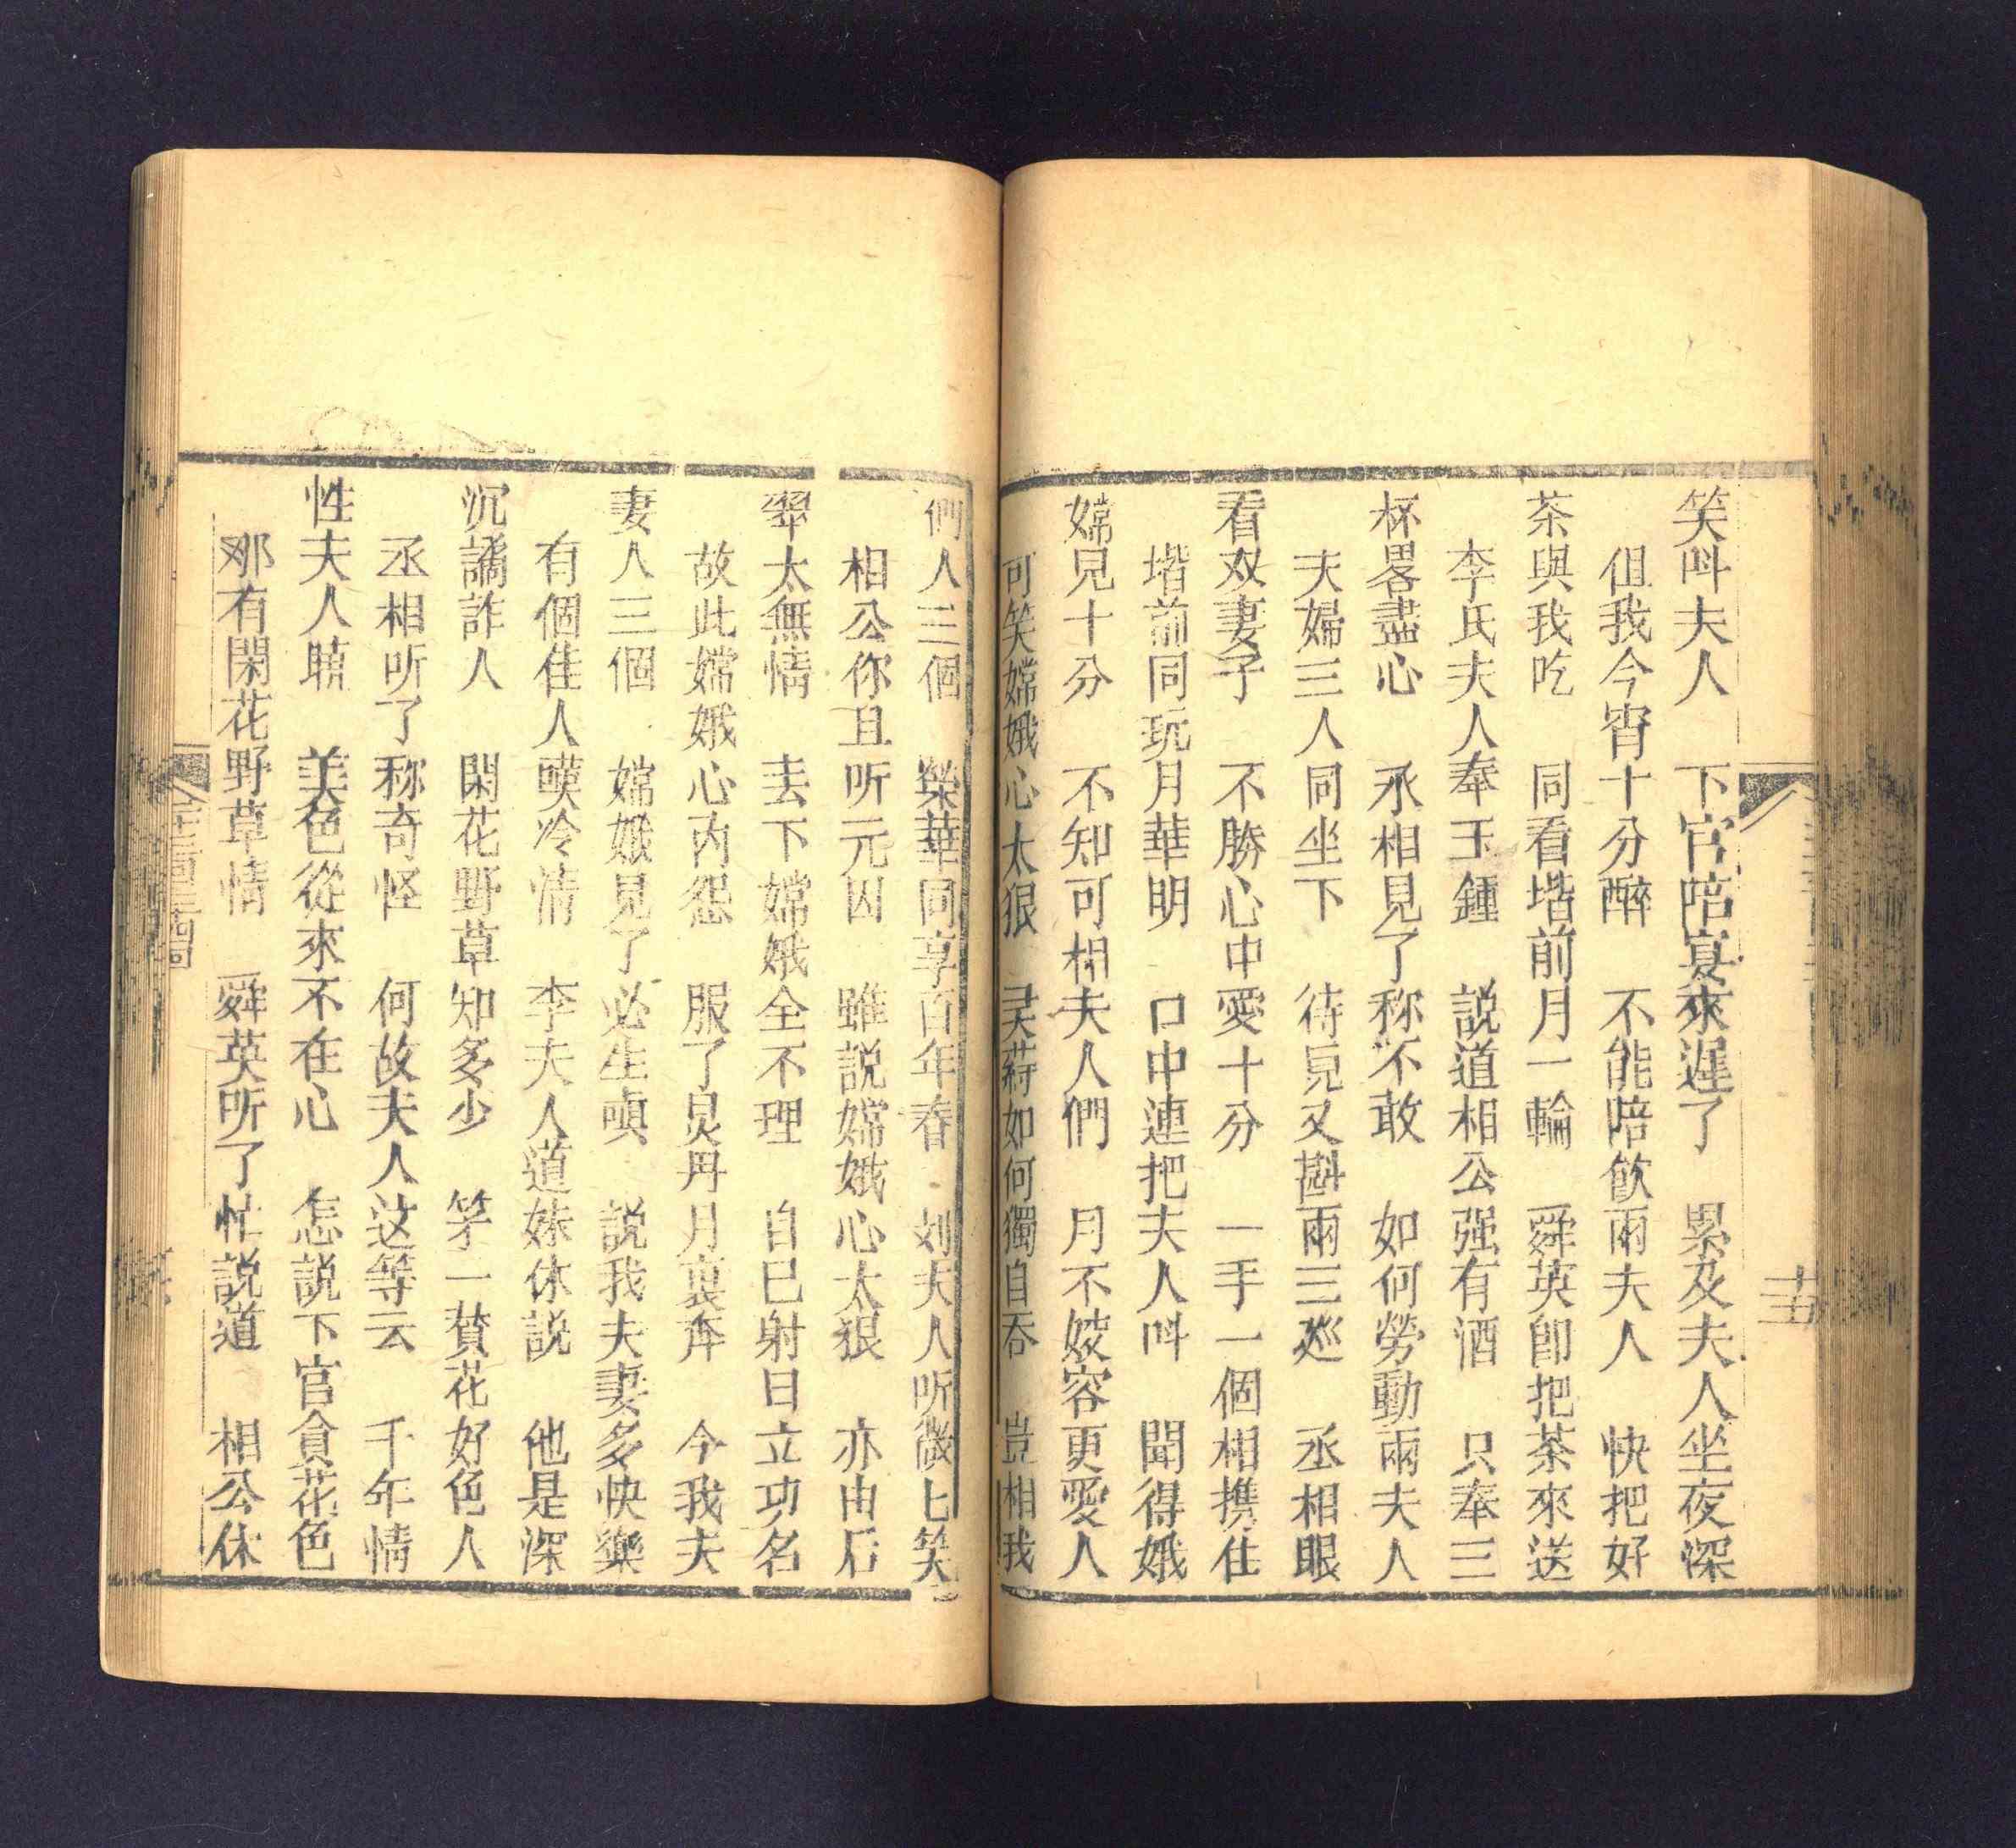 笑呌夫人　下官陪宴來遲了　累及夫人坐夜深
但我今宵十分醉　不能陪飲兩夫人　快把好
茶與我吃　同看堦前月一輪　舜英卽把茶來送
李氏夫人奉玉鍾　説道相公强有酒　只奉三
杯畧盡心　丞相見了称不敢　如何勞動兩夫人
夫婦三人同坐下　待見又斟兩三巡　丞相眼
看双妻子　不勝心中愛十分　一手一個相携住
堦前同玩月華明　口中連把夫人呌　聞得娥
嫦見十分　不知可相夫人們　月不妓容更愛人
可笑嫦娥心太狠　如何獨自吞　豈相我
們人三個　榮華同享百年春　刘夫人听微匕笑
相公你且听元因　雖説嫦娥心太狠　亦由后
羿太無情　丟下嫦娥全不理　自巳射日立功名
故此嫦娥心内怨　服了灵丹月裏奔　今我夫
妻人三個　嫦娥見了必生嗔　説我夫妻多快樂
有個佳人嘆冷清　李夫人道妹休説　他是深
沉譎詐人　閑花野草知多少　笑一賛花好色人
丞相听了称奇怪　何故夫人这等云　千年情
性夫人瞔　美色從來不在心　怎説下官貪花色
那有閑花野草情　舜英听了忙説道　相公休
十五